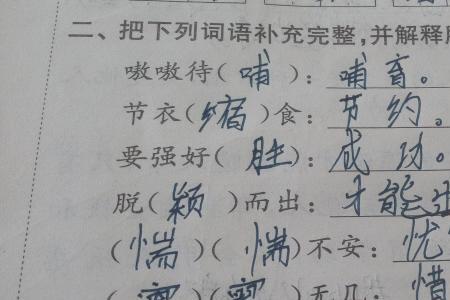 二、把下列词语补充完整,并解释
嗷嗷待(哺):哺育。
节衣(缩)食:节约。
要强好(胜):成功。
脱(颖)而出:才能
(惴)(惴)不安:忧
无几:惜